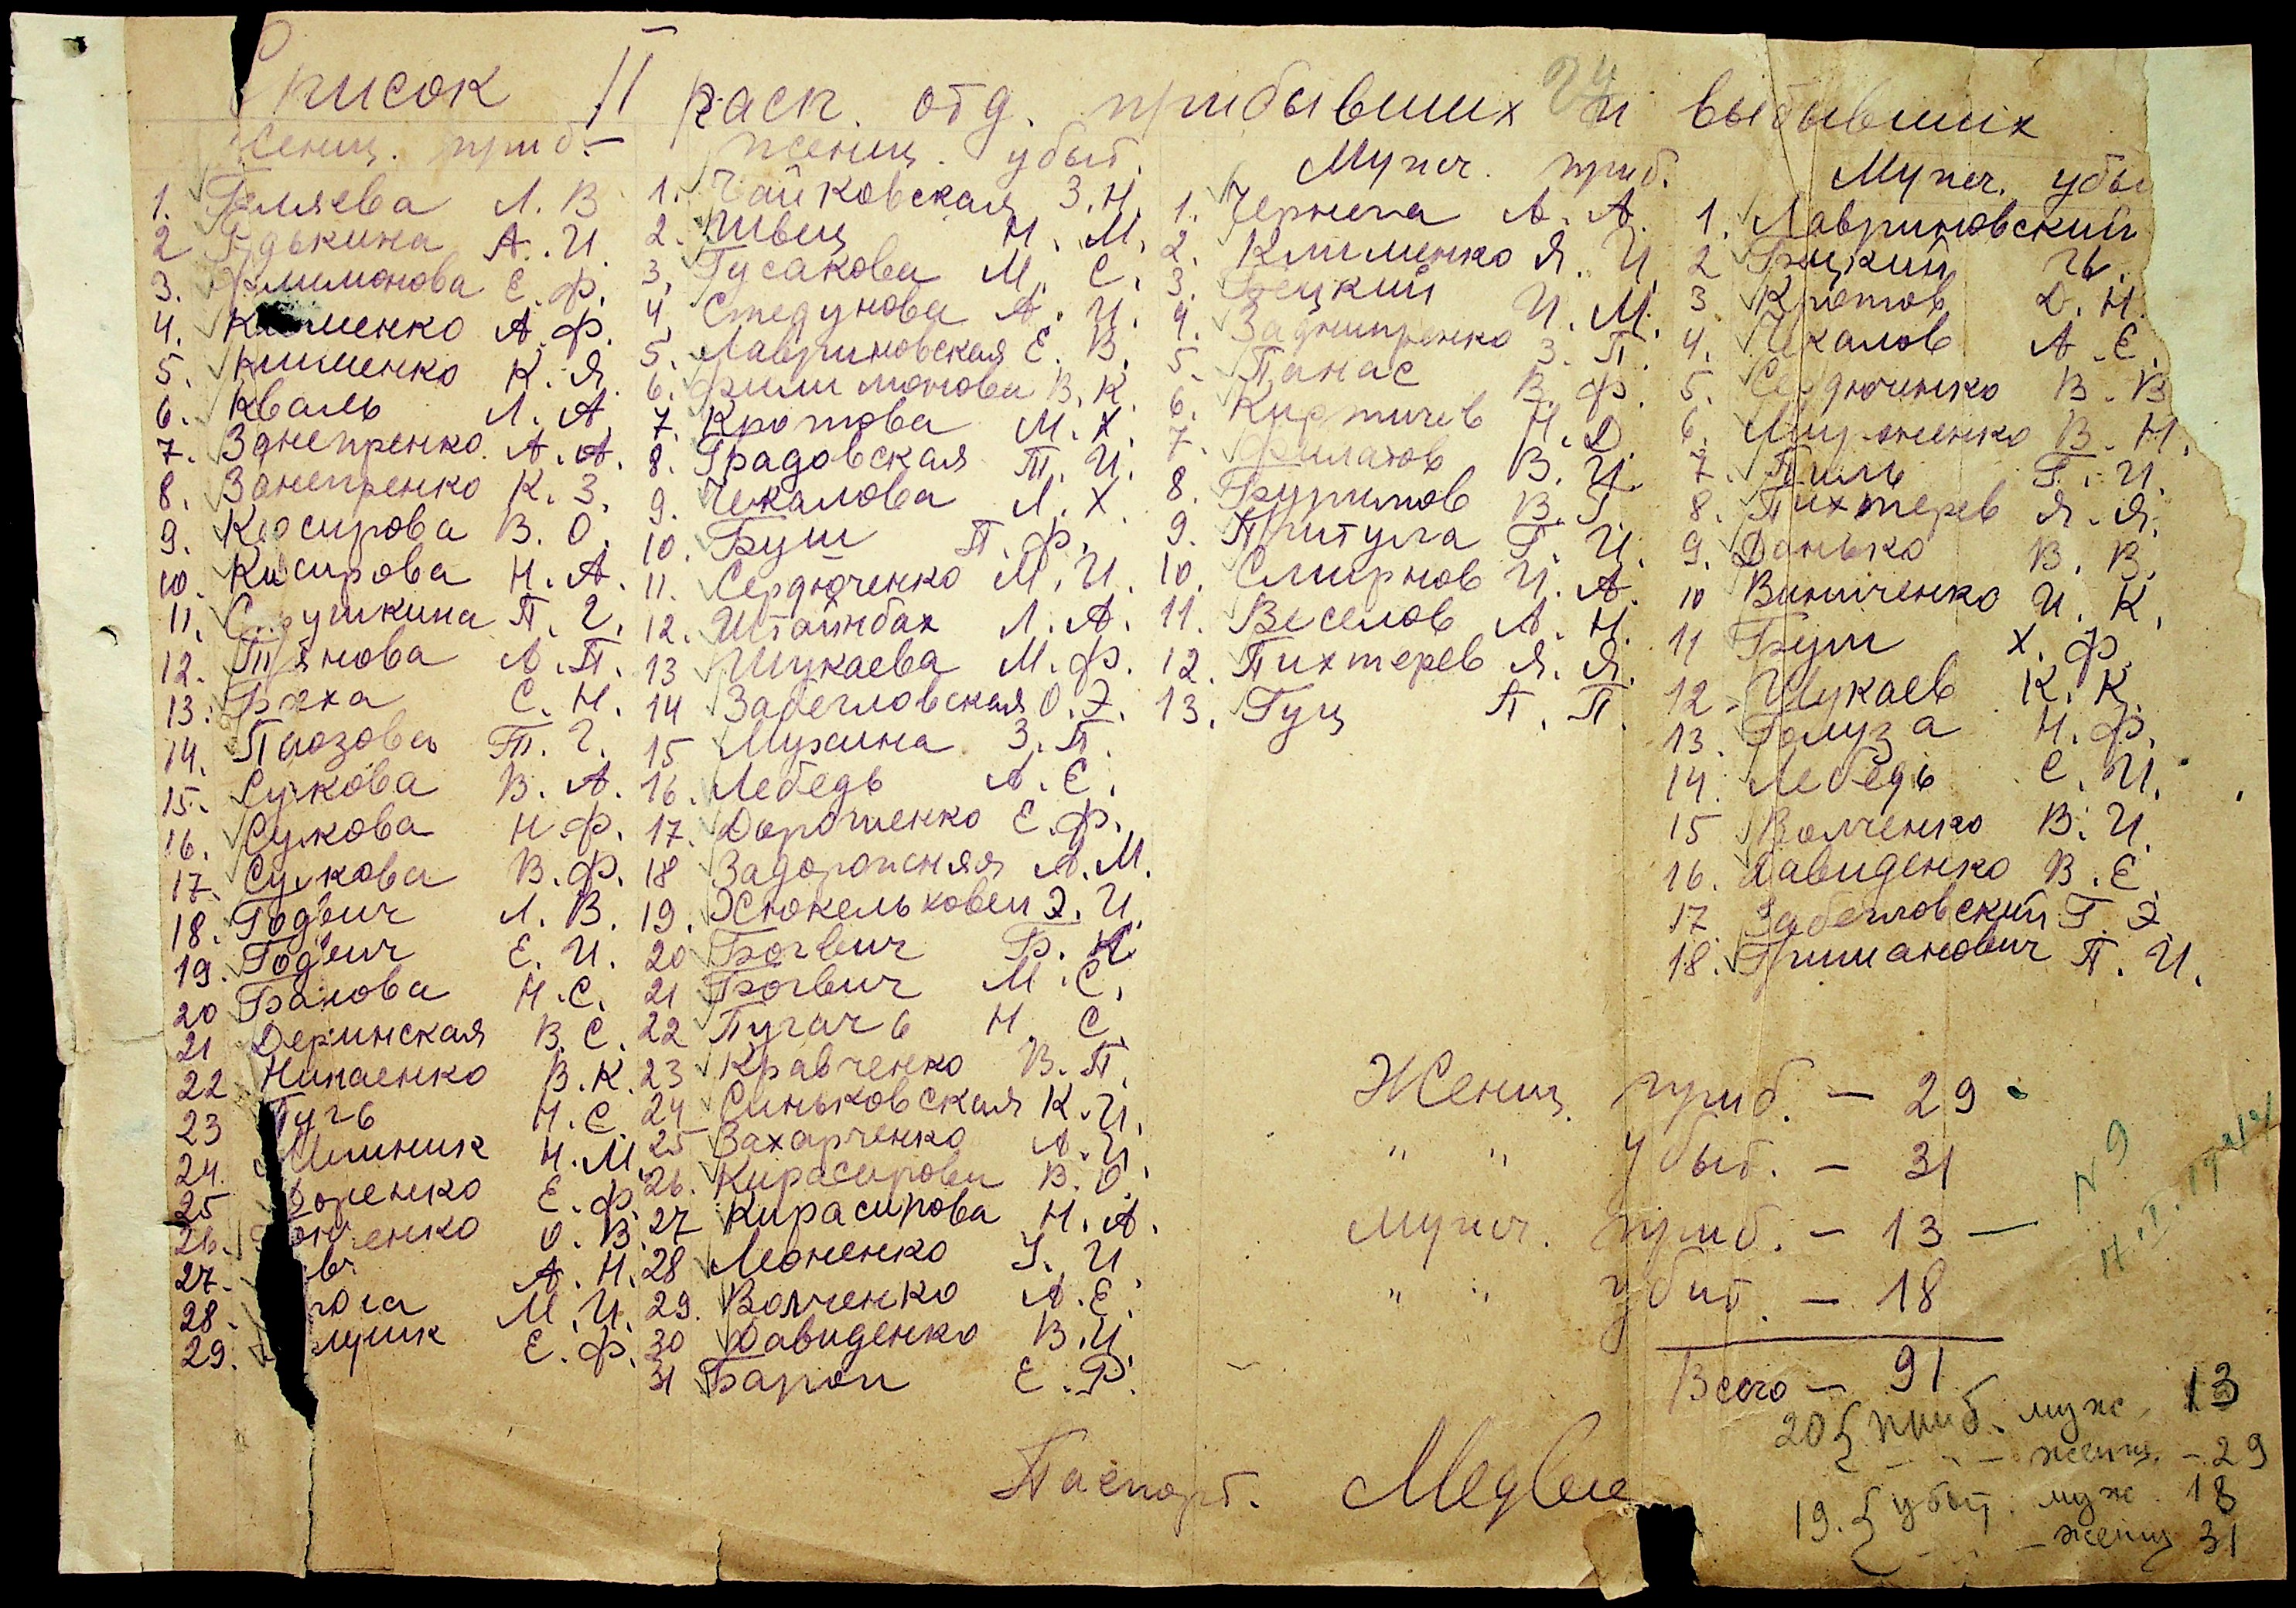 Список II расп. отд. прибывших и выбывших
Женщ. приб.
1. Беляева Л. В
2 Будькина А. И.
3. Филимонова Е. Ф.
4. Клименко А. Ф.
5. Клименко К. Я.
6. Коваль Л. А.
7.Зднепренко. А. А.
8. Занепренко К. З.
9. Керосирова В. О.
10. Кирсирова Н. А.
11. П. Г.
12. А. П.
13. С. Н.
14. П. Г.
15. Сукова В. А.
16. Сукова Н. Ф.
17. Сукова В. Ф.
18. Годвич Л. В.
19. Годвич Е. И.
20 Баиова Н. С.
21 Деринская В. С.
22 В. К.
23 Н. С.
24. Н. М.
25 оренко Е. Ф.
26. енко О. В.
27. А. Н.
28. М. И.
29. Е. Ф.
женщ. убыт.
1. Чайковская З. Н.
2. Швец Н. М.
3. Гусакова М. С.
4 Стедунова А. И.
5. Лавриновская Е. В.
6. Филимонова В. К.
7. Кротова М. Х.
8. Градовская П. И.
9. Чекалова Л. Х.
10. Буш П. Ф.
11. Сердюченко М. И.
12. Штайнбах Л. А.
13 Шукаева М. Ф.
14 Забегловская О. Э.
15 Мухина З. П.
16. Лебедь А. Е.
17. Дорошенко Е. Ф.
18 Задорожняя А. М.
19. Э. И.
20 Богвич Б. К.
21 Богвич М. С.
22 Пугачь Н. С.
23 Кравченко В. П.
24 Синьковская К. И.
25 Захарченко А. И.
26. Кирасирова В. О.
27 Кирасирова Н. А.
28 Леоненко У. И
29. Волченко А. Е.
30 Давиденко В. И.
31 Барон Е. Р.
Мужч. приб.
1. Чернега А. А.
2. Клименко Я. И.
3. Бецкий И. М.
4. Заднипренко З. П.
5. Панас В. Ф.
6. Кирпичев Н. Д.
7. Филатов В. И.
8. Буримов В. Г.
9. Притула Г. И.
10. Смирнов И. А.
11. Веселов А. Н.
12. Пихтерев Я. Я.
13. Гуц П. П.
Мужч. убы
1. Лавриновский
2 Бецкий
3 Кротов Д. Н.
4. Чекалов А. Е.
5. Сердюченко В. В
6. Мироненко В. Н.
7. Пиль Г. И.
8. Пихтерев Я. Я.
9. Данько В. В.
10 Винниченко И. К.
11 Буш Х. Ф.
12. Шукаев К. К.
13. Голуза Н. Ф.
14. Лебедь С. И.
15 Волченко В. И.
16. Давиденко В. Е.
17 Забегловский Г. Э.
18. Гриманович П. И.
Женщ. приб. — 29
" " убыт. — 31
Мужч. приб. — 13 —
" " убыт. — 18
Всего — 91
N 9
20 { приб. муж. 13
— " — женщ. — 29
19. { убыт. муж. 18
— " — женщ 31
Паспорт. Медве